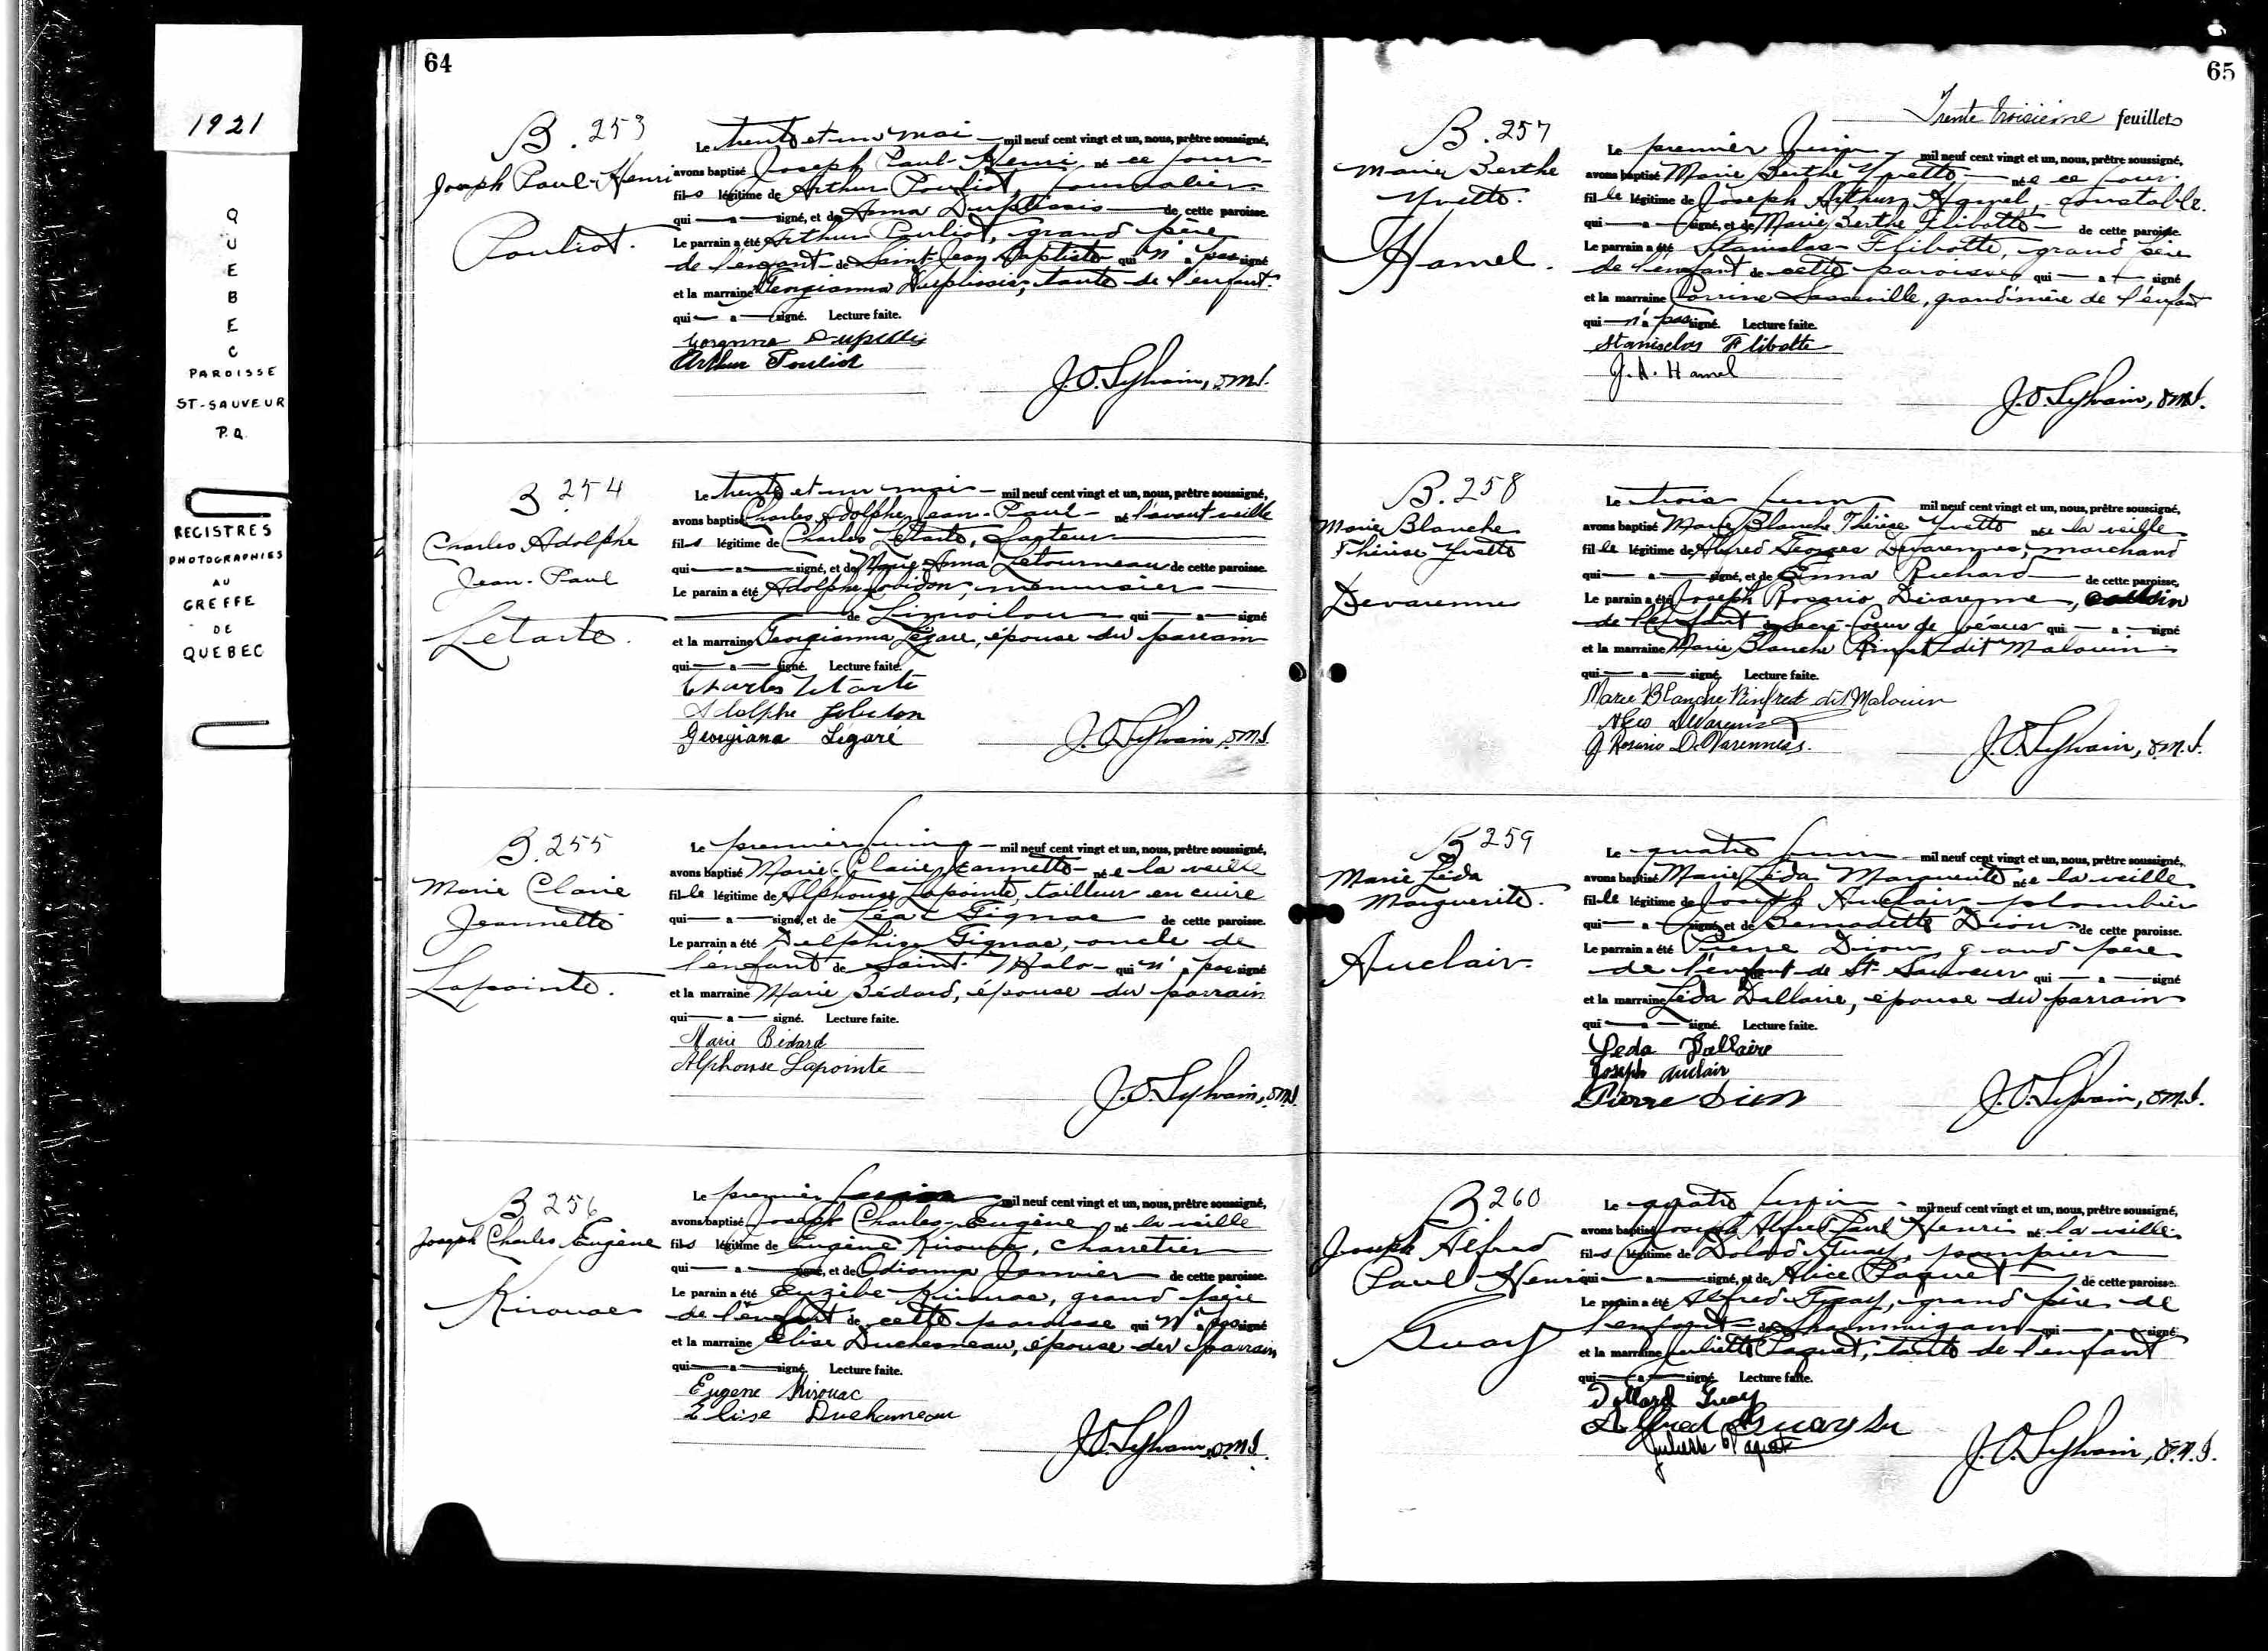 1921
QUEBEC
PAROISSE
ST-SAUVEUR
P.Q.
REGISTRES
PHOTOGRAPHIES
AU
GREFFE
DE
QUEBEC
64
B. 253
Joseph Paul-Henri
Pouliot.
Le trente et un mai mil neuf cent vingt et un, nous, prêtre soussigné,
avons baptisé Joseph Paul-Henri né ce jour
fils légitime de Arthur Pouliot, journalier
qui — a — signé, et de Anna Duplessis de cette paroisse.
Le parrain a été Arthur Pouliot, grand père
de l'enfant de Saint-Jean Baptiste qui n'a pas signé
et la marraine Georgianna Duplessis, tante de l'enfant.
qui — a — signé. Lecture faite.
Arthur Pouliot
J.O. Sylvain, o.m.i.
B 254
Charles Adolphe
Jean-Paul
Letarte.
Le trente et un mai — mil neuf cent vingt et un, nous, prêtre soussigné,
avons baptisé Charles Adolphe Jean-Paul — né l'avant veille
fils légitime de Charles Letarte, facteur
qui — a — signé, et de Marie Anna Letourneau de cette paroisse.
Le parain a été Adolphe Jobidon, menuisier
de Limoilou qui — a — signé
et la marraine Georgianna Légaré, épouse du parrain
qui — a — signé. Lecture faite.
Charles Letarte
Adolphe Jobidon
Georgiana Légaré
J.O. Sylvain, o.m.i.
B. 255
Marie Claire
Jeannette
Lapointe.
Le premier juin — mil neuf cent vingt et un, nous, prêtre soussigné,
avons baptisé Marie-Claire Jeannette — née la veille
fille légitime de Alphonse Lapointe, tailleur en cuire
qui — a — signé, et de Léa Gignac de cette paroisse.
Le parrain a été Delphis Gignac, oncle de
l'enfant de Saint-Malo — qui n'a pas signé
et la marraine Marie Bédard, épouse du parrain
qui — a — signé. Lecture faite.
Marie Bédard
Alphonse Lapointe
J.O. Sylvain, o.m.i.
B 256
Joseph Charles Eugène
Kirouac
Le premier juin mil neuf cent vingt et un, nous, prêtre soussigné,
avons baptisé Joseph Charles-Eugène né la veille
fils légitime de Eugène Kirouac, charretier
qui — a — signé, et de Odianna Janvier de cette paroisse.
Le parain a été Euzèbe Kirouac, grand père
de l'enfant de cette paroisse qui n'a pas signé
et la marraine Elise Duchesneau, épouse du parrain
qui — a — signé. Lecture faite.
Eugene Kirouac
Elise Duchesneau
J.O. Sylvain, o.m.i.
65
Trente troisième feuillets
B. 257
Marie Berthe
Yvette.
Hamel.
Le premier juin mil neuf cent vingt et un, nous, prêtre soussigné,
avons baptisé Marie Berthe Yvette née ce jour.
fille légitime de Joseph Arthur Hamel, constable.
qui — a — signé, et de Marie Berthe Flibotte — de cette paroisse.
Le parrain a été Stanislas Flibotte, grand père
de l'enfant de cette paroisse qui — a — signé
et la marraine Corrine Sasseville, grand'mère de l'enfant
qui n'a pas signé. Lecture faite.
Stanislas Flibotte
J.A. Hamel
J.O. Sylvain, o.m.i.
B. 258
Marie Blanche
Thérèse Yvette
Devarenne
Le trois juin mil neuf cent vingt et un, nous, prêtre soussigné,
avons baptisé Marie Blanche Thérèse Yvette née la veille
fille légitime de Alfred Georges Devarennes, marchand
qui — a — signé, et de Emma Richard — de cette paroisse,
Le parain a été Joseph Rosario Devarenne, cousin
de l'enfant de Sacré-Coeur de Jésus qui — a — signé
et la marraine Marie Blanche Rinfret dit Malouin
qui — a — signé. Lecture faite.
Marie Blanche Rinfret dit Malouin
J Rosario DeVarennes.
J.O. Sylvain, o.m.i.
B 259
Marie Léda
Marguerite.
Auclair.
Le quatre juin mil neuf cent vingt et un, nous, prêtre soussigné,
avons baptisé Marie Léda Marguerite née la veille
fille légitime de Joseph Auclair, plombier
qui — a — signé, et de Bernadette Dion de cette paroisse.
Le parrain a été Pierre Dion, grand père
de l'enfant de St-Sauveur qui — a — signé
et la marraine Léda Dallaire, épouse du parrain
qui — a — signé. Lecture faite.
Leda Dallaire
Joseph Auclair
Pierre Dion
J.O. Sylvain, o.m.i.
B 260
Joseph Alfred
Paul Henri
Guay
Le quatre juin mil neuf cent vingt et un, nous, prêtre soussigné,
avons baptisé Joseph Alfred Paul Henri né la veille
fils légitime de Dolard Guay, pompier
qui — a — signé, et de Alice Paquet de cette paroisse.
Le parain a été Alfred Guay, grand père de
l'enfant de Shawinigan qui — a — signé
et la marraine Juliette Paquet, tante de l'enfant
qui — a — signé. Lecture faite.
Dollard Guay
Alfred Guay Sr
Juliette Paquet
J.O. Sylvain, o.m.i.